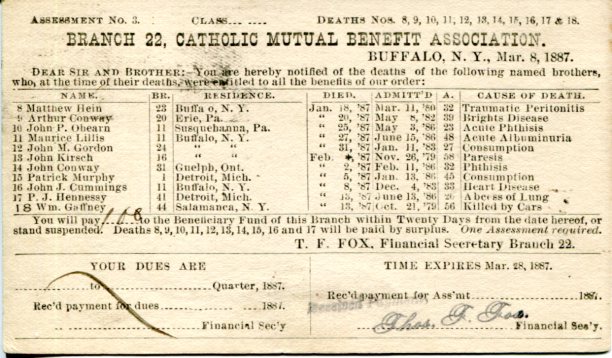 ASSESSMENT No. 3. CLASS........ DEATHS NOS. 8, 9, 10, 11, 12, 13, 14, 15, 16, 17 & 18.
BRANCH 22, CATHOLIC MUTUAL BENEFIT ASSOCIATION.
BUFFALO, N. Y., Mar. 8, 1887.
DEAR SIR AND BROTHER:—You are hereby notified of the deaths of the following named brothers,
who, at the time of their deaths, were entitled to all the benefits of our order:
NAME. BR. RESIDENCE. DIED. ADMIT'D A. CAUSE OF DEATH.
8 Matthew Hein 23 Buffa o, N. Y. Jan. 18, '87 Mar. 11, '80 32 Traumatic Peritonitis
9 Arthur Conway 20 Erie, Pa. " 20, '87 May 8, '82 39 Brights Disease
10 John P. Ohearn 11 Susquehanna, Pa. " 25, '87 May 3, '86 23 Acute Phthisis
11 Maurice Lillis 11 Buffalo, N. Y. " 27, '87 June 15, '86 48 Acute Albuminuria
12 John M. Gordon 24 " " " 31, '87 Jan. 13, '83 27 Consumption
13 John Kirsch 16 " " Feb. '87 Nov. 26, '79 58 Paresis
14 John Conway 31 Guelph, Ont. " 2, '87 Feb. 11, '86 32 Phthisis
15 Patrick Murphy 1 Detroit, Mich. " 5, '87 Jan. 13, '86 45 Consumption
16 John J. Cummings 11 Buffalo, N. Y. " 8, '87 Dec. 4, '83 33 Heart Disease
17 P. J. Hennessy 41 Detroit, Mich. " 15, '87 June 13, '86 26 Abcess of Lung
18 Wm. Gaffney 44 Salamanca, N. Y. " 13, '87 Oct. 21, '79 56 Killed by Cars
You will pay........to the Beneficiary Fund of this Branch within Twenty Days from the date hereof, or
stand suspended. Deaths 8, 9, 10, 11, 12, 13, 14, 15, 16 and 17 will be paid by surplus. One Assessment required.
T. F. FOX, Financial Secretary Branch 22.
YOUR DUES ARE
........to........Quarter, 1887.
Rec'd payment for dues........1887.
........Financial Sec'y
TIME EXPIRES Mar. 28, 1887.
Rec'd payment for Ass'mt........1887.
Thos. F. Fox. Financial Sec'y.